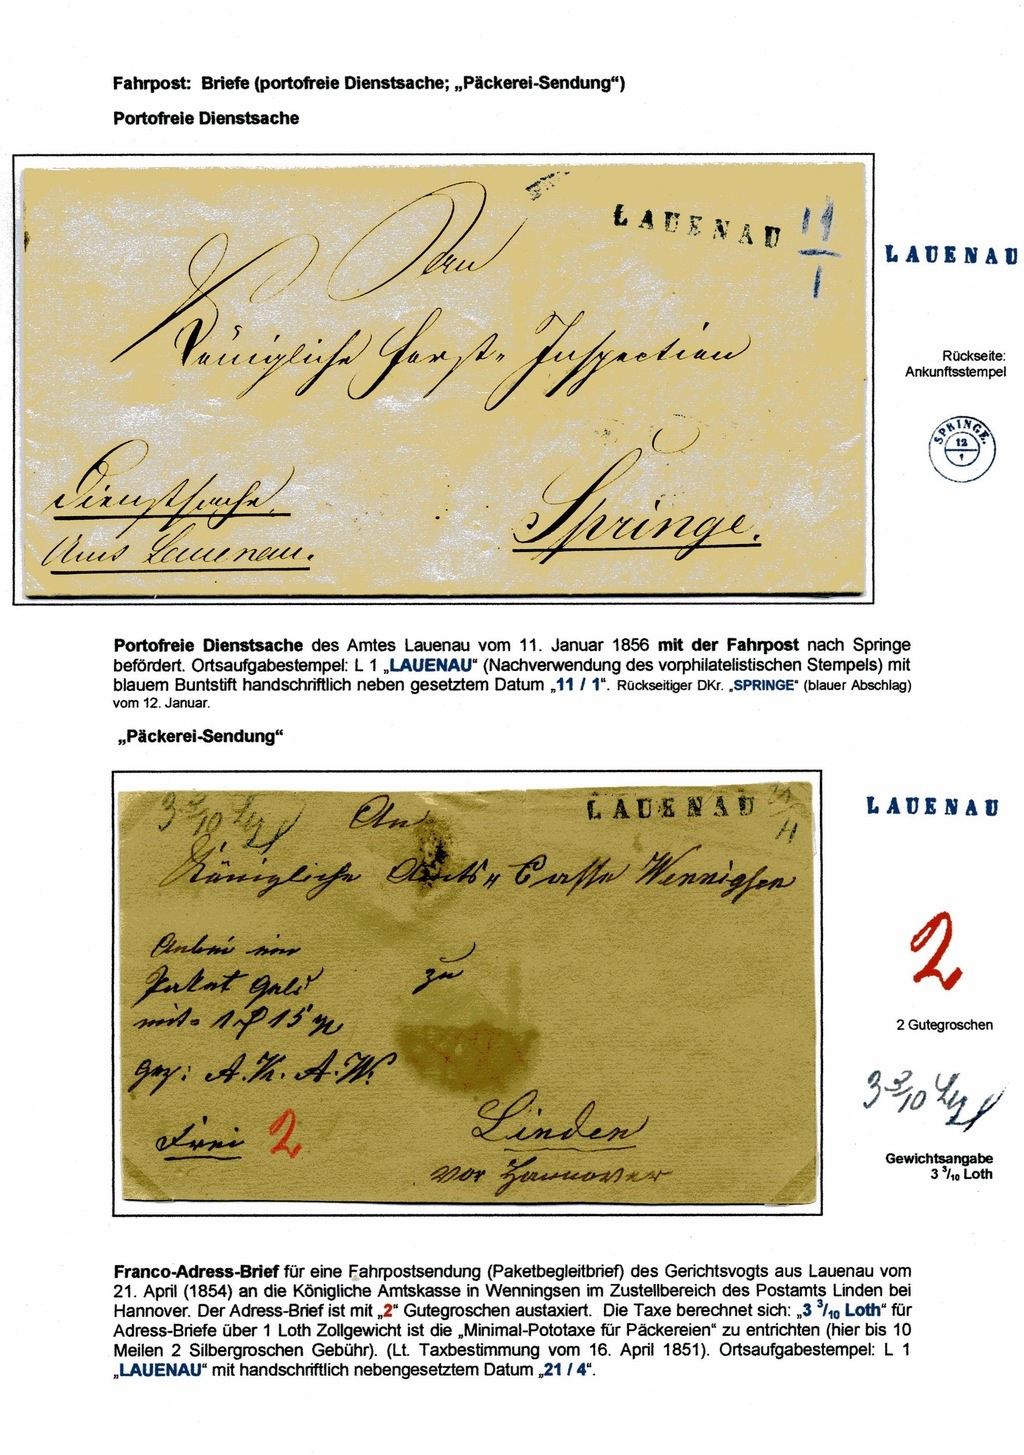 Fahrpost: Briefe (portofreie Dienstsache; „Päckerei-Sendung“)
Portofreie Dienstsache
LAUENAU 11
1
An
Königliche Forst- Inspection
Dienstsache.
Amt Lauenau.
Springe.
LAUENAU
Rückseite:
Ankunftsstempel
SPRINGE.
12
1
Portofreie Dienstsache des Amtes Lauenau vom 11. Januar 1856 mit der Fahrpost nach Springe
befördert. Ortsaufgabestempel: L 1 „LAUENAU“ (Nachverwendung des vorphilatelistischen Stempels) mit
blauem Buntstift handschriftlich neben gesetztem Datum „11 / 1“. Rückseitiger DKr. „SPRINGE“ (blauer Abschlag)
vom 12. Januar.
„Päckerei-Sendung“
3 3/10 An LAUENAU 21
4
Königliche Amts- Casse Wennigsen
Anbei ein
Paket Geld zu
mit 15
gez: A. K. A. W.
Frei 2
Linden
vor Hannover
LAUENAU
2
2 Gutegroschen
3 3/10
Gewichtsangabe
3 3/10 Loth
Franco-Adress-Brief für eine Fahrpostsendung (Paketbegleitbrief) des Gerichtsvogts aus Lauenau vom
21. April (1854) an die Königliche Amtskasse in Wenningsen im Zustellbereich des Postamts Linden bei
Hannover. Der Adress-Brief ist mit „2“ Gutegroschen austaxiert. Die Taxe berechnet sich: „3 3/10 Loth“ für
Adress-Briefe über 1 Loth Zollgewicht ist die „Minimal-Pototaxe für Päckereien“ zu entrichten (hier bis 10
Meilen 2 Silbergroschen Gebühr). (Lt. Taxbestimmung vom 16. April 1851). Ortsaufgabestempel: L 1
„LAUENAU“ mit handschriftlich nebengesetztem Datum „21 / 4“.